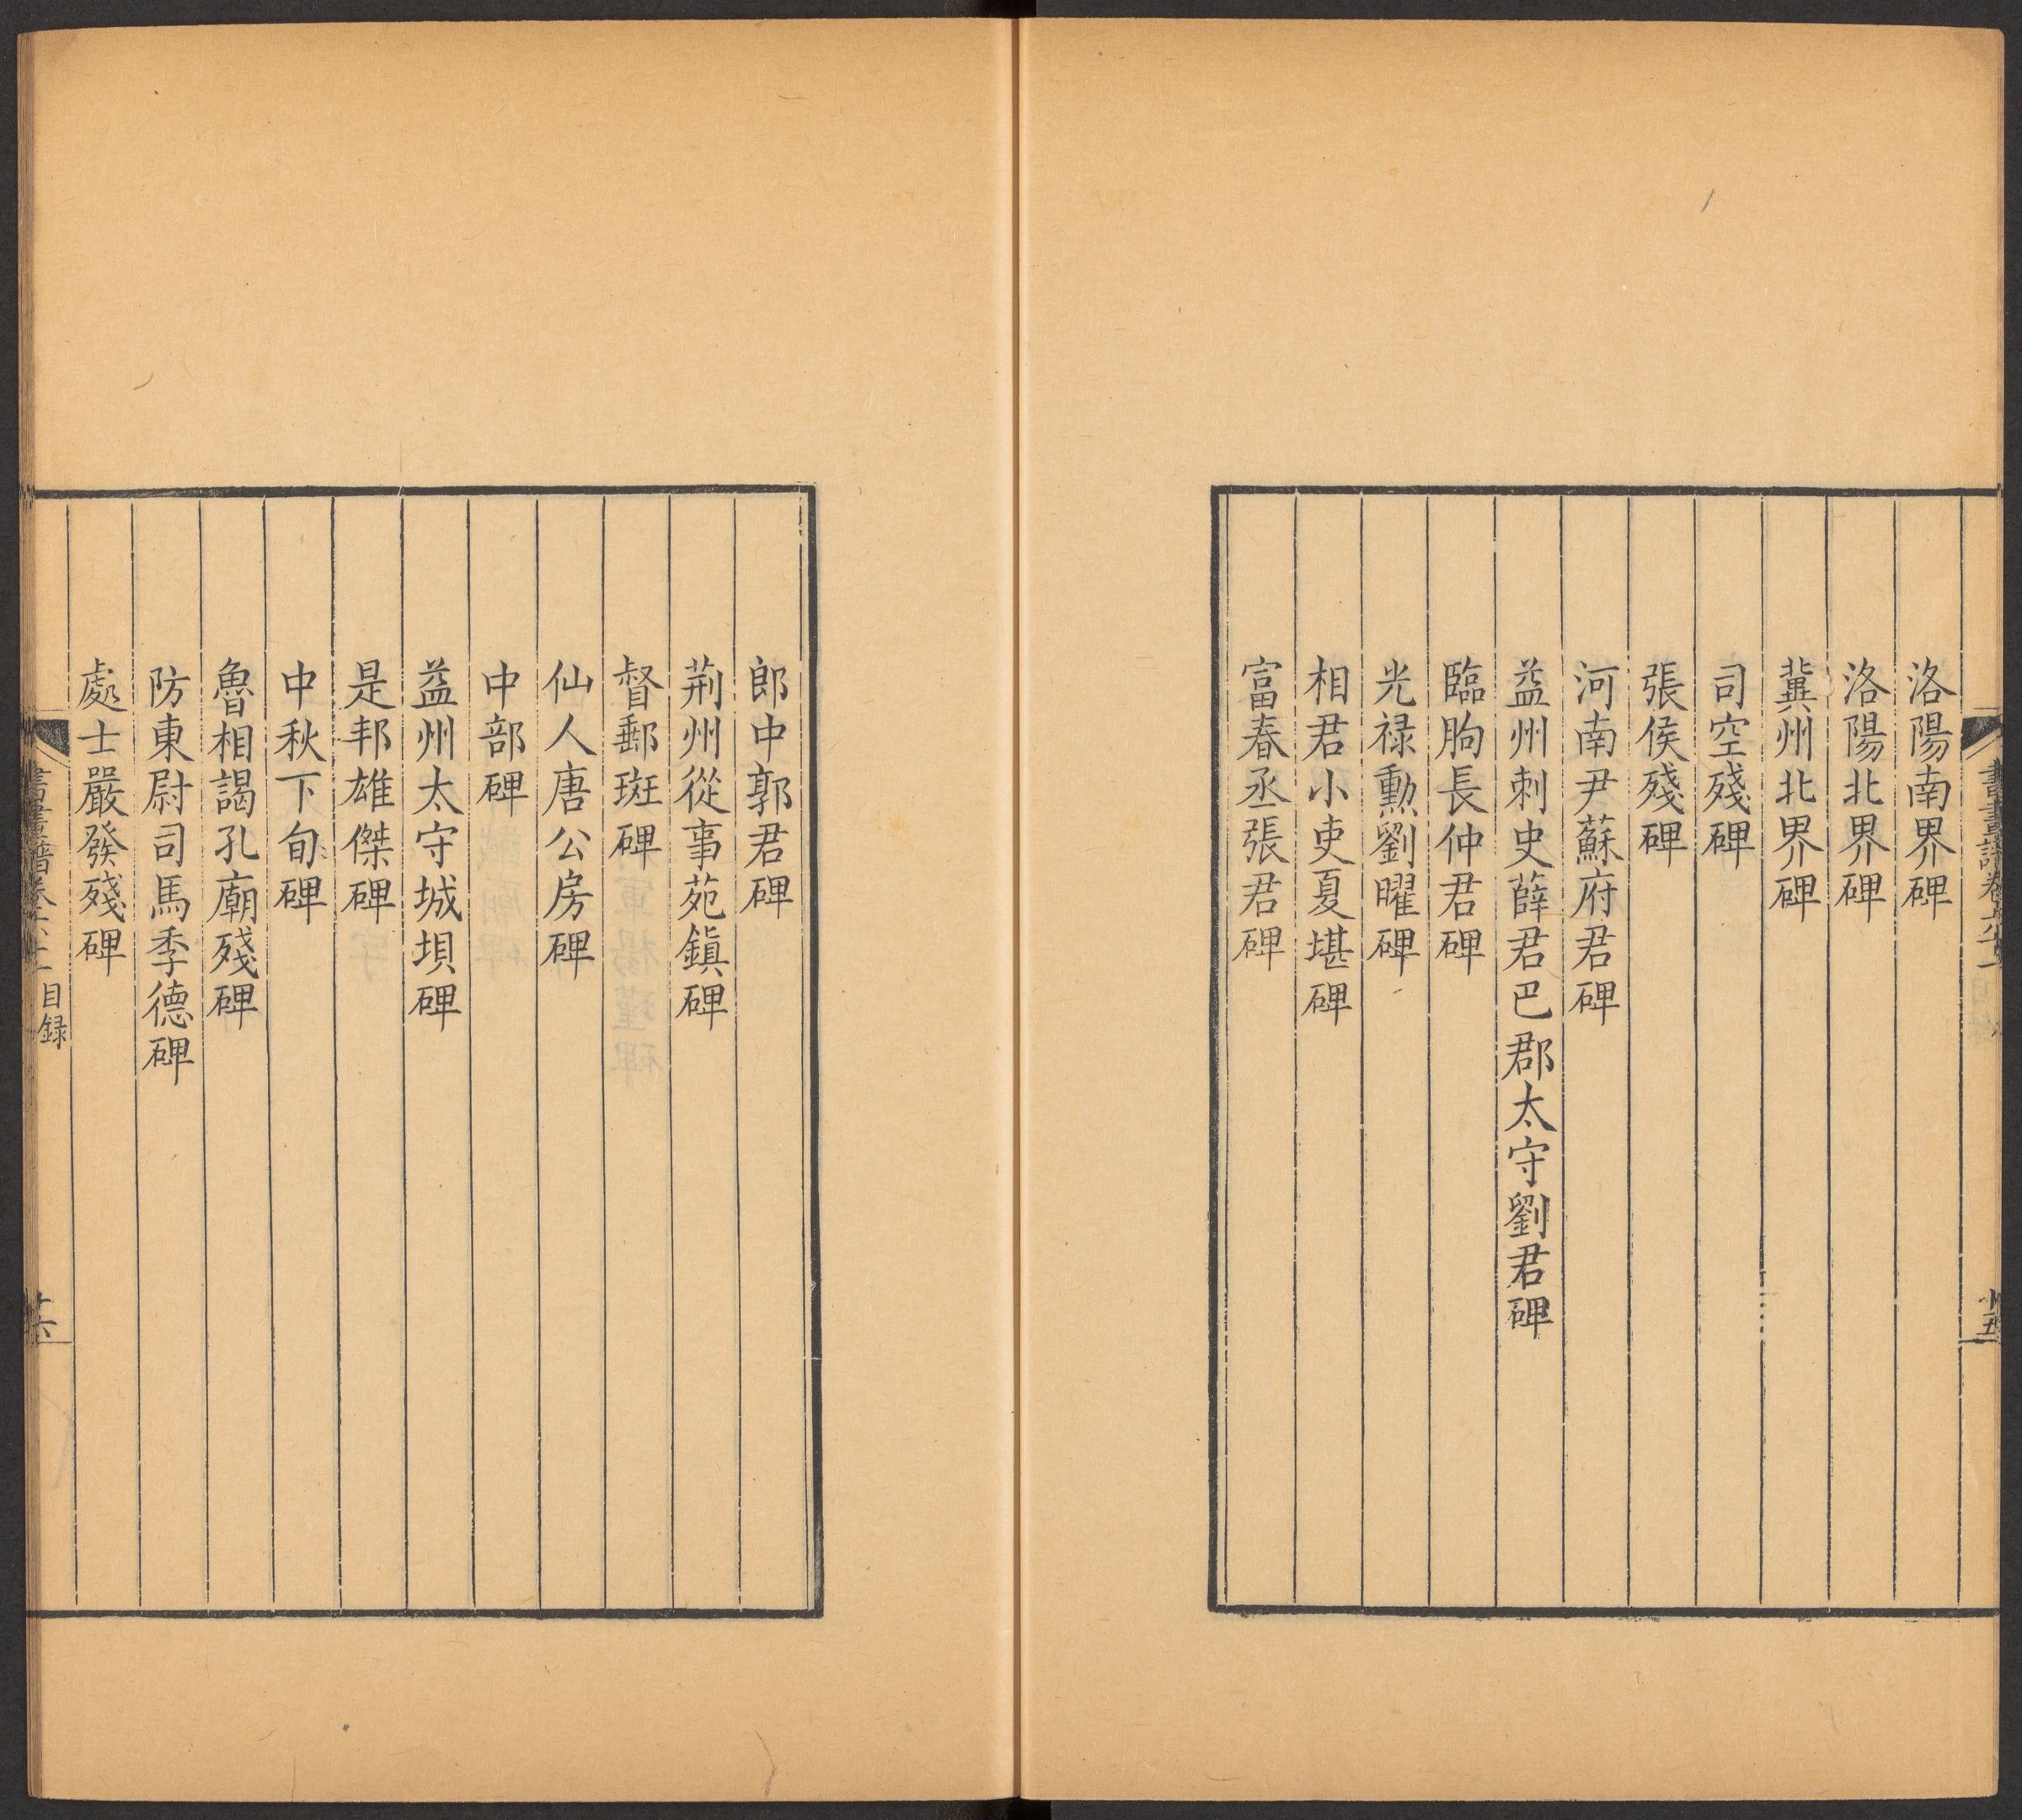 洛陽南界碑
洛陽北界碑
冀州北界碑
司空殘碑
張侯殘碑
河南尹蘇府君碑
益州刺史薛君巴郡太守劉君碑
臨朐長仲君碑
光禄勲劉曜碑
相君小吏夏堪碑
富春丞張君碑
郎中郭君碑
荆州從事苑鎮碑
督郵斑碑
仙人唐公房碑
中部碑
益州太守城垻碑
是邦雄傑碑
中秋下旬碑
魯相謁孔廟殘碑
防東尉司馬季德碑
處士嚴發殘碑
目録